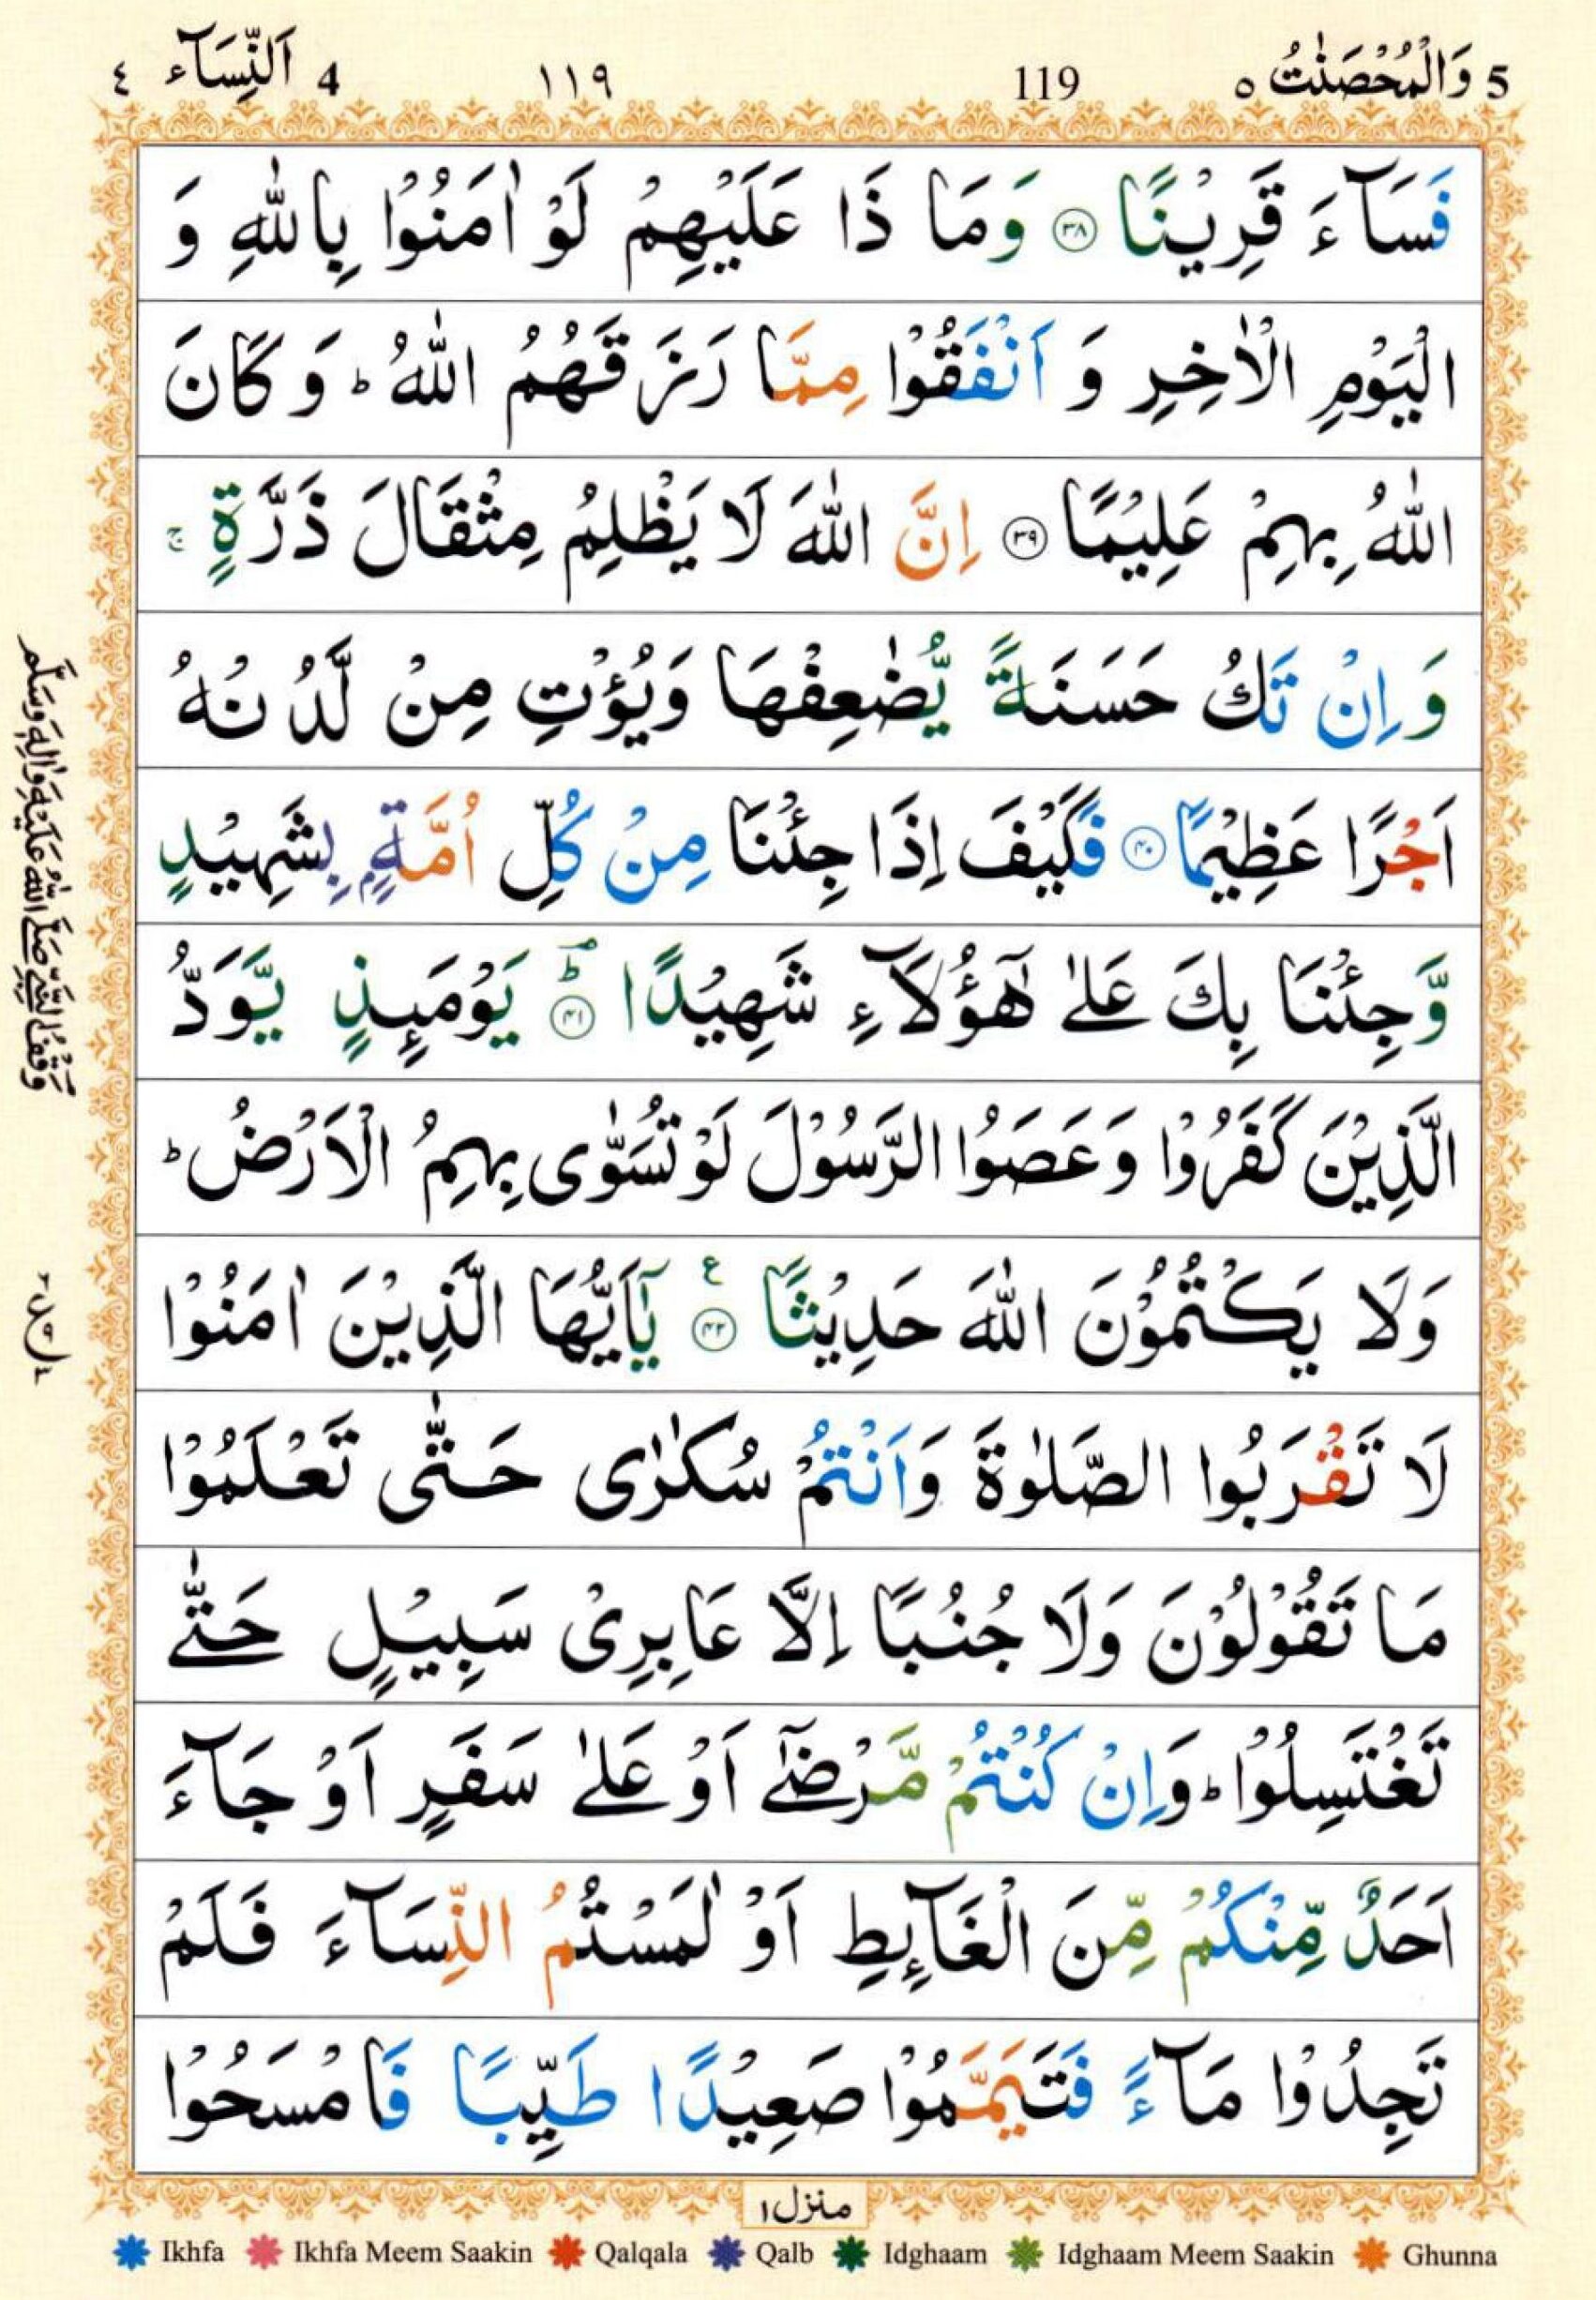 5 وَالْمُحْصَنٰتُ ٥ 119 ١١٩ 4 اَلنِّسَآء ٤
فَسَآءَ قَرِيْنًا ﴿۳۸﴾ وَمَا ذَا عَلَيْهِمْ لَوْ اٰمَنُوْا بِاللّٰهِ وَ
الْيَوْمِ الْاٰخِرِ وَ اَنْفَقُوْا مِمَّا رَزَقَهُمُ اللّٰهُ ؕ وَ كَانَ
اللّٰهُ بِهِمْ عَلِيْمًا ﴿۳۹﴾ اِنَّ اللّٰهَ لَا يَظْلِمُ مِثْقَالَ ذَرَّةٍ ۚ
وَ اِنْ تَكُ حَسَنَةً يُّضٰعِفْهَا وَيُؤْتِ مِنْ لَّدُنْهُ
اَجْرًا عَظِيْمًا ﴿۴۰﴾ فَكَيْفَ اِذَا جِئْنَا مِنْ كُلِّ اُمَّةٍۭ بِشَهِيْدٍ
وَّجِئْنَا بِكَ عَلٰى هٰٓؤُلَآءِ شَهِيْدًا ؕ ﴿۴۱﴾ يَوْمَئِذٍ يَّوَدُّ
الَّذِيْنَ كَفَرُوْا وَعَصَوُا الرَّسُوْلَ لَوْ تُسَوّٰى بِهِمُ الْاَرْضُ ؕ
وَلَا يَكْتُمُوْنَ اللّٰهَ حَدِيْثًا ﴿۴۲﴾ ع يٰٓاَيُّهَا الَّذِيْنَ اٰمَنُوْا
لَا تَقْرَبُوا الصَّلٰوةَ وَاَنْتُمْ سُكٰرٰى حَتّٰى تَعْلَمُوْا
مَا تَقُوْلُوْنَ وَلَا جُنُبًا اِلَّا عَابِرِيْ سَبِيْلٍ حَتّٰى
تَغْتَسِلُوْا ؕ وَاِنْ كُنْتُمْ مَّرْضٰٓى اَوْ عَلٰى سَفَرٍ اَوْ جَآءَ
اَحَدٌ مِّنْكُمْ مِّنَ الْغَآئِطِ اَوْ لٰمَسْتُمُ النِّسَآءَ فَلَمْ
تَجِدُوْا مَآءً فَتَيَمَّمُوْا صَعِيْدًا طَيِّبًا فَامْسَحُوْا
وَقْفُ النَّبِيِّ صَلَّى اللّٰهُ عَلَيْهِ وَاٰلِهٖ وَسَلَّم
منزل ١
Ikhfa Ikhfa Meem Saakin Qalqala Qalb Idghaam Idghaam Meem Saakin Ghunna